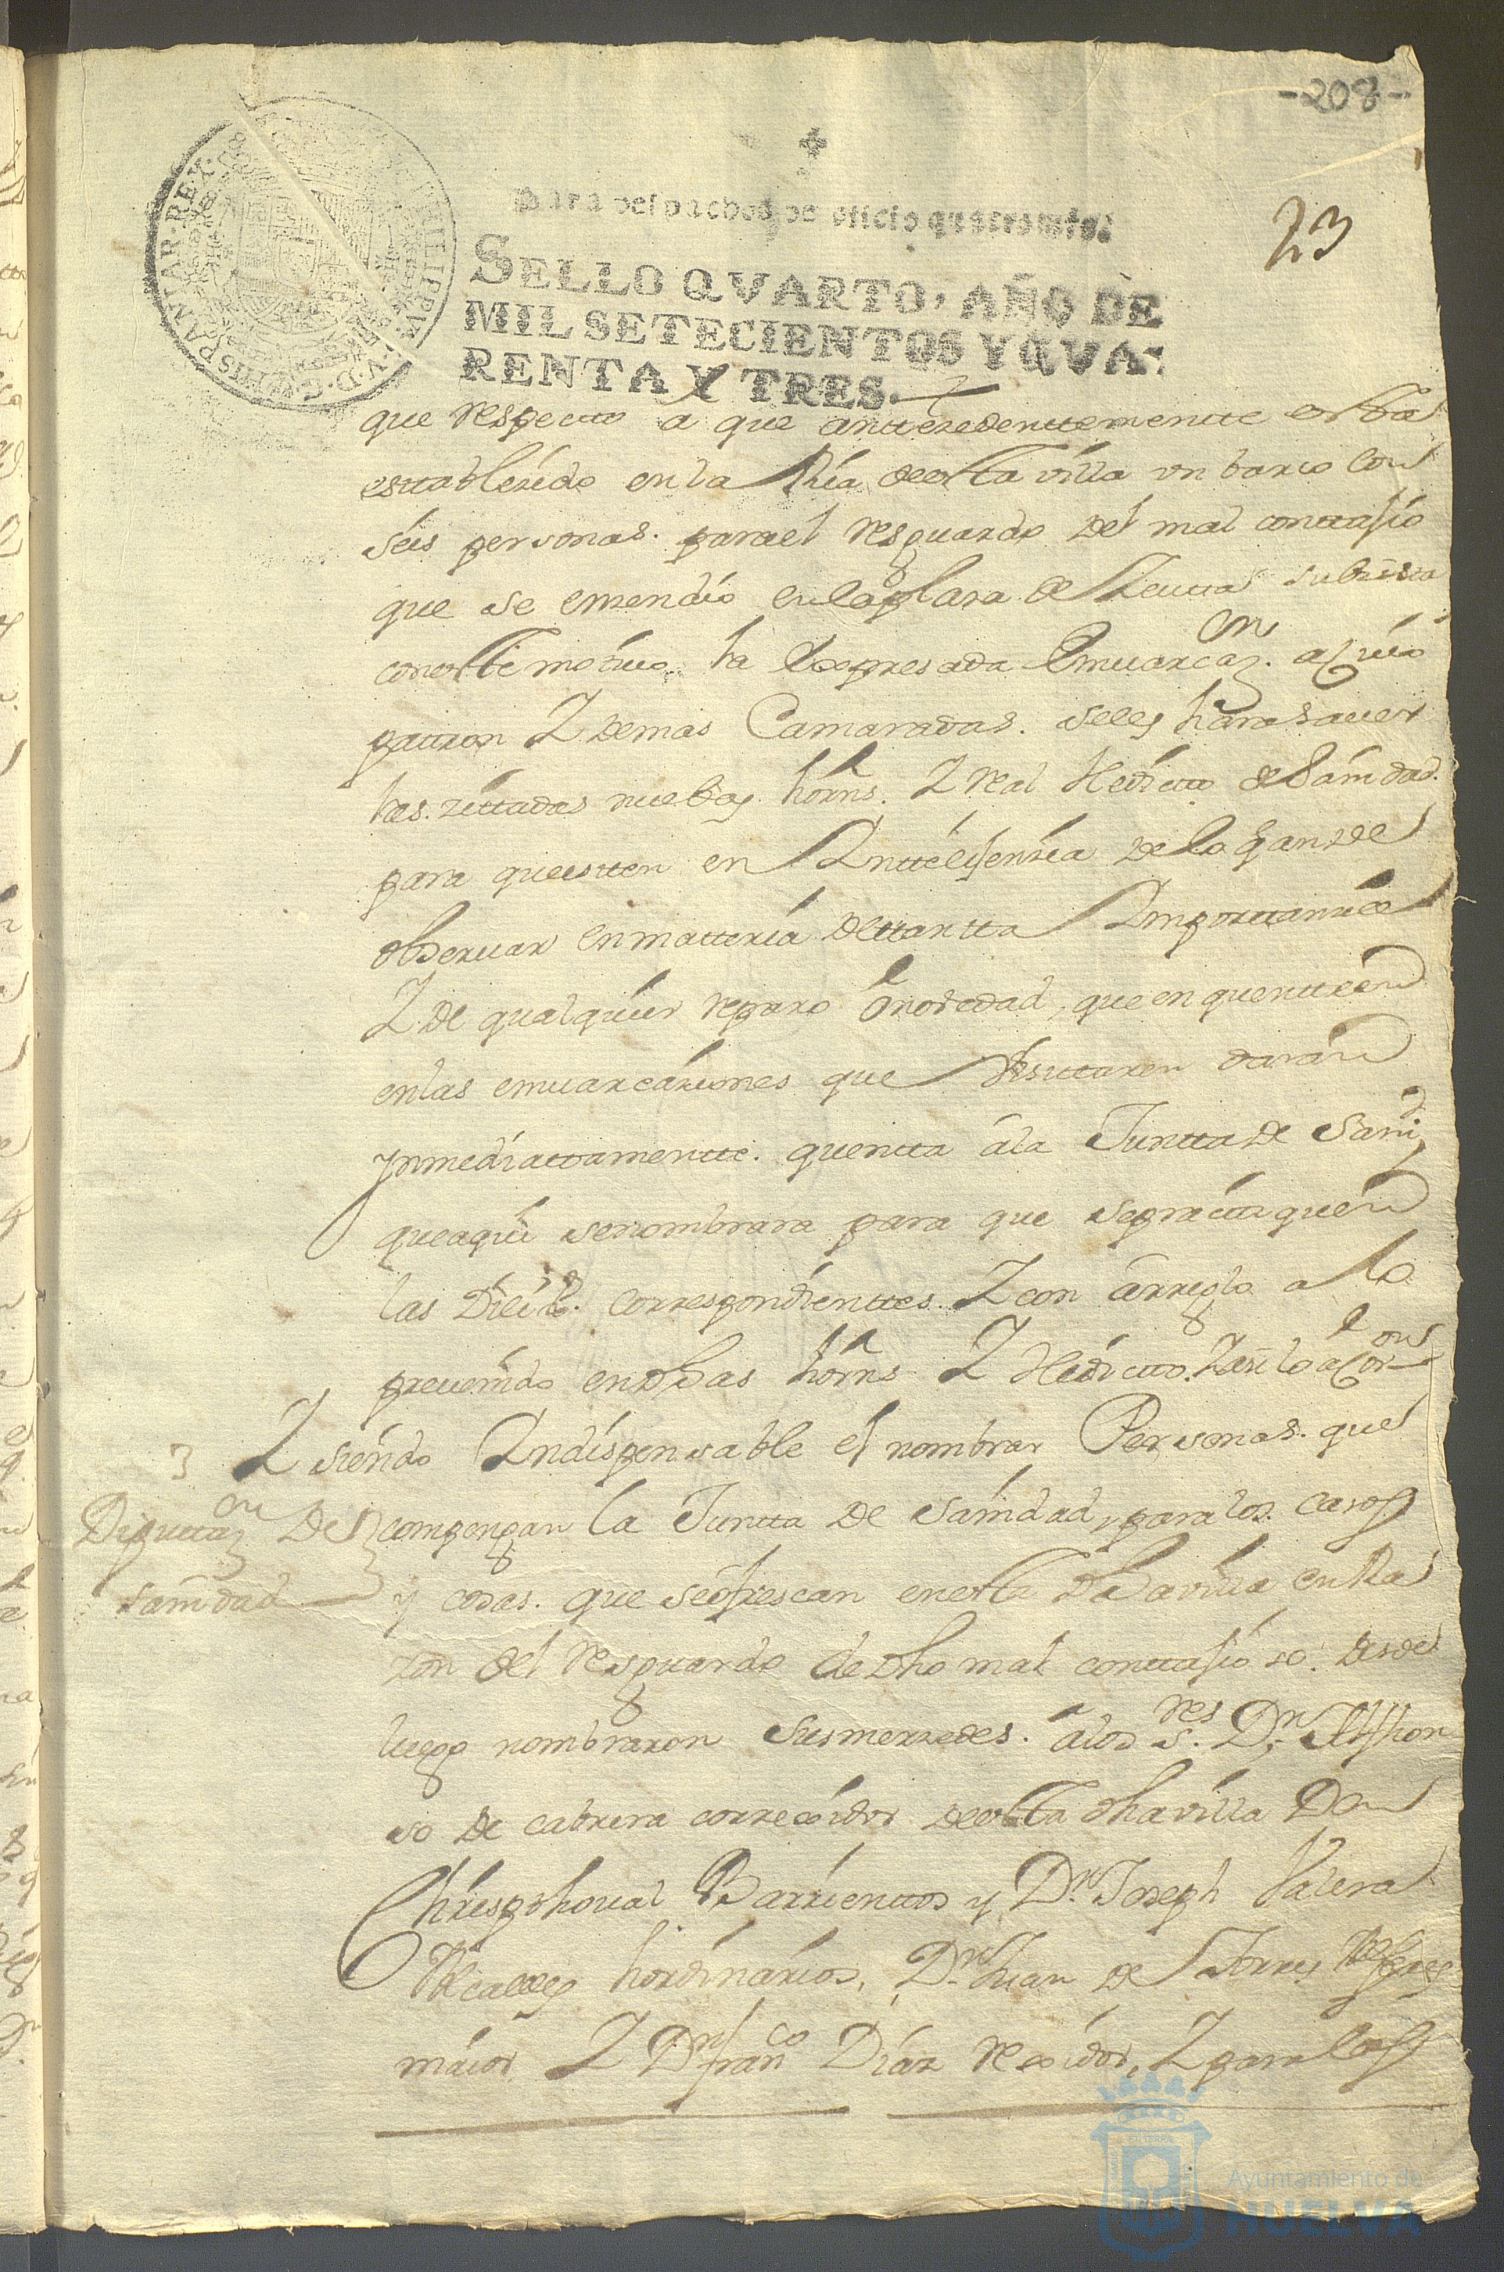 -208-
23
PHILIPPUS V D G HISPANIAR REX
Para despachos de oficio quatro mrs.
SELLO QVARTO, AÑO DE
MIL SETECIENTOS Y QVA-
RENTA Y TRES.
que respecto a que anttezedenttementte esttá
esttablezido en la Ria de estta villa vn barco Con
seis personas. para el resguardo del mal conttajio
que se ensendio en la plaza de Zeutta subsista
con estte motiuo la Expresada Emuarcaon. a Cuio
pattron Y demas Camaradas. se les hara sauer
las. zittadas nuebas hórns. Y real Hedictto de Sanidad.
para que estten en Ynttelijenzia de lo q han de
obseruar en matteria de ttantta Ymporttanzia
Y de qualquier reparo ó nobedad, que enquenttren
en las emuarcaziones que Visittaren daran
ynmediattamentte. quentta á la Juntta de Sanid
que aqui se nombrara para que se practtiquen
las Dilixs. correspondienttes. Y con arreglo a lo
preuenido en dhas hórns Y Hedictto. Y asi lo acordon
3 Y siendo Yndispensable el nombrar Personas. que
Diputtaon De compongan la Juntta de Sanidad, para los. casos
Sanidad y cosas. que se ofrescan en estta dha villa en Ra
zon del resguardo de dho mal conttajioso. desde
luego nombraron sus merzedes. á los Sres. Dn Ildefhon
so de cabrera correxidor de estta dha villa Dn
Chrispthoual Barrienttos y Dn Joseph Valera
Alcaldes hordinários, Dn Juan de Torres Alferes
máior Y Dn franco Diáz rexidor, Y para los
Ayuntamiento de
HUELVA